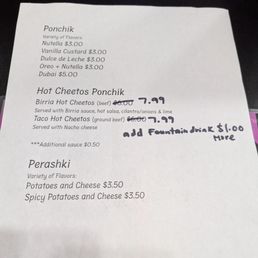 Ponchik
Variety of Flavors:
Nutella $3.00
Vanilla Custard $3.00
Dulce de Leche $3.00
Oreo + Nutella $3.00
Dubai $5.00
Hot Cheetos Ponchik
Birria Hot Cheetos (beef) $6.00 7.99
Served with Birria sauce, hot salsa, cilantro/onions & lime
Taco Hot Cheetos (ground beef) $6.00 7.99
Served with Nacho cheese
add Fountain drink $1.00
more
***Additional sauce $0.50
Perashki
Variety of Flavors:
Potatoes and Cheese $3.50
Spicy Potatoes and Cheese $3.50